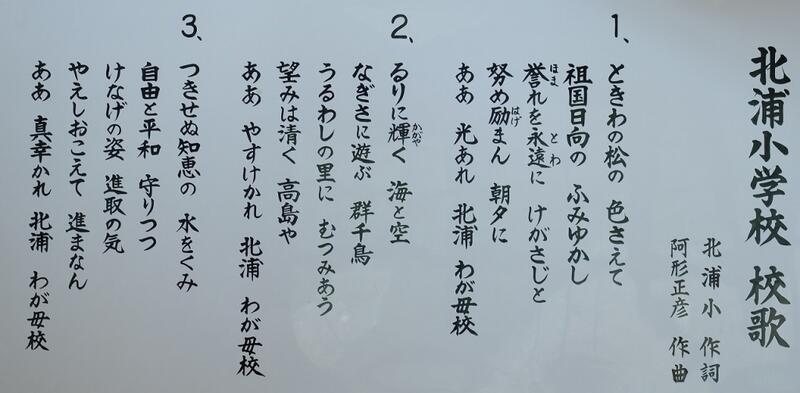 北浦小学校 校歌
北浦小 作詞
阿形正彦 作曲
1、ときわの松の 色さえて
祖国日向の ふみゆかし
誉れを永遠に けがさじと
努め励まん 朝夕に
ああ 光あれ 北浦 わが母校
2、るりに輝く 海と空
なぎさに遊ぶ 群千鳥
うるわしの里に むつみあう
望みは清く 高島や
ああ やすけかれ 北浦 わが母校
3、つきせぬ知恵の 水をくみ
自由と平和 守りつつ
けなげの姿 進取の気
やえしおこえて 進まなん
ああ 真幸かれ 北浦 わが母校